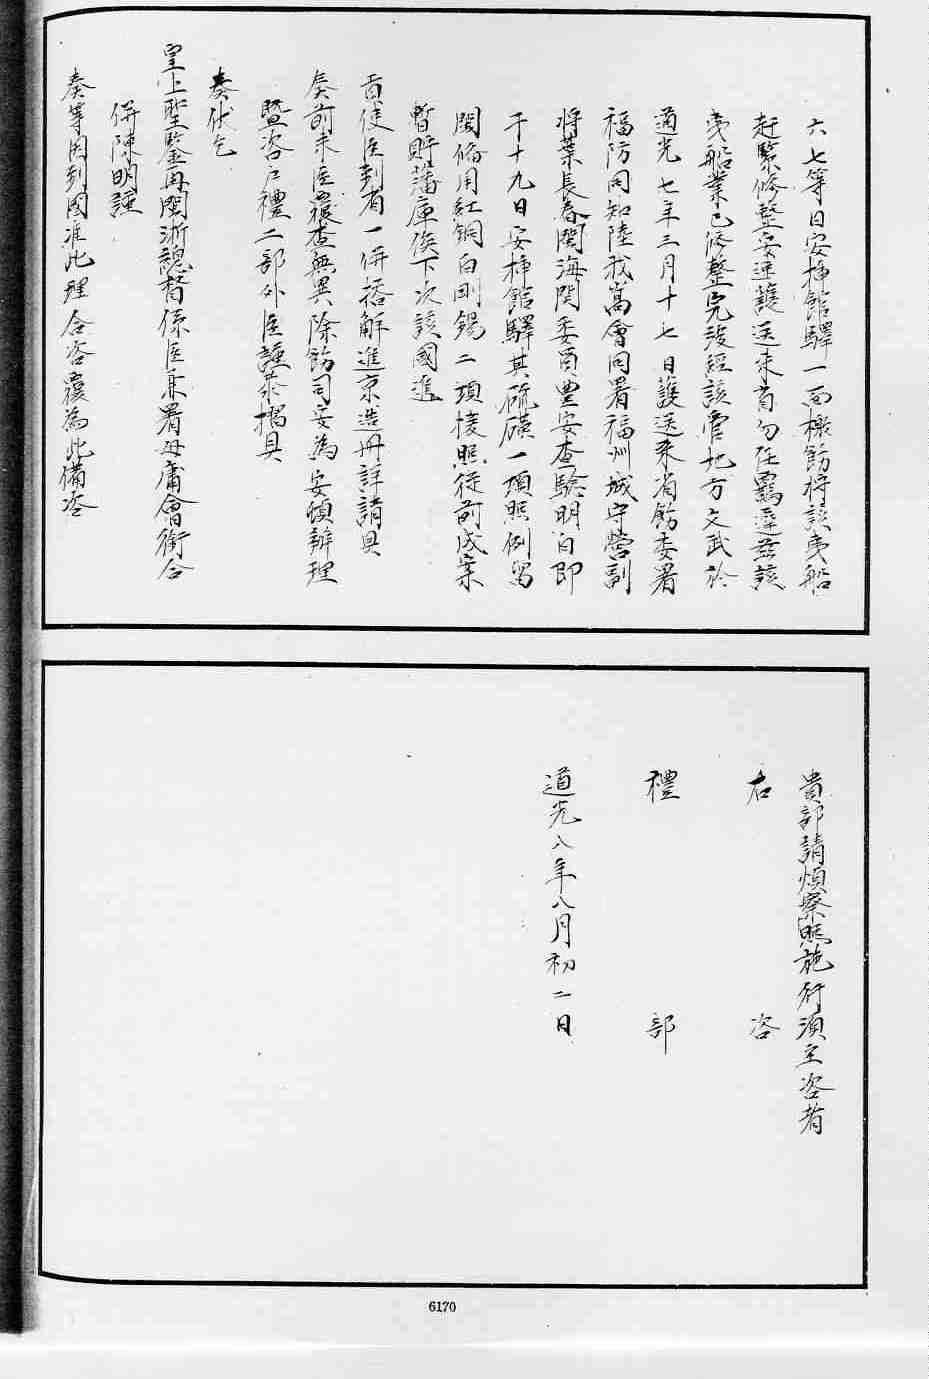 六七等日安揷館驛一面檄飭將該夷船
赶緊修整妥速護送來省勿任羈遲茲該
夷船業已修整完竣經該管地方文武於
道光七年三月十七日護送來省飭委署
福防同知陸我嵩會同署福州城守營副
將葉長春閩海関委員豊安查驗明白即
于十九日安揷館驛其硫磺一項照例留
閩俻用紅銅白剛錫二項棲照從前成案
暫貯藩庫俟下次該國進
貢使臣到省一併搭解進京造册詳請具
奏前來臣覆查無異除飭司妥為安頓辦理
暨咨戸禮二部外臣謹恭摺具
奏伏乞
皇上聖鑒再閩浙總督係臣兼署毋庸會銜合
併陳明謹
奏等因到國准此理合咨覆為此備咨
貴部請煩察照施行湏至咨者
右咨
禮部
道光八年八月初二日
6170